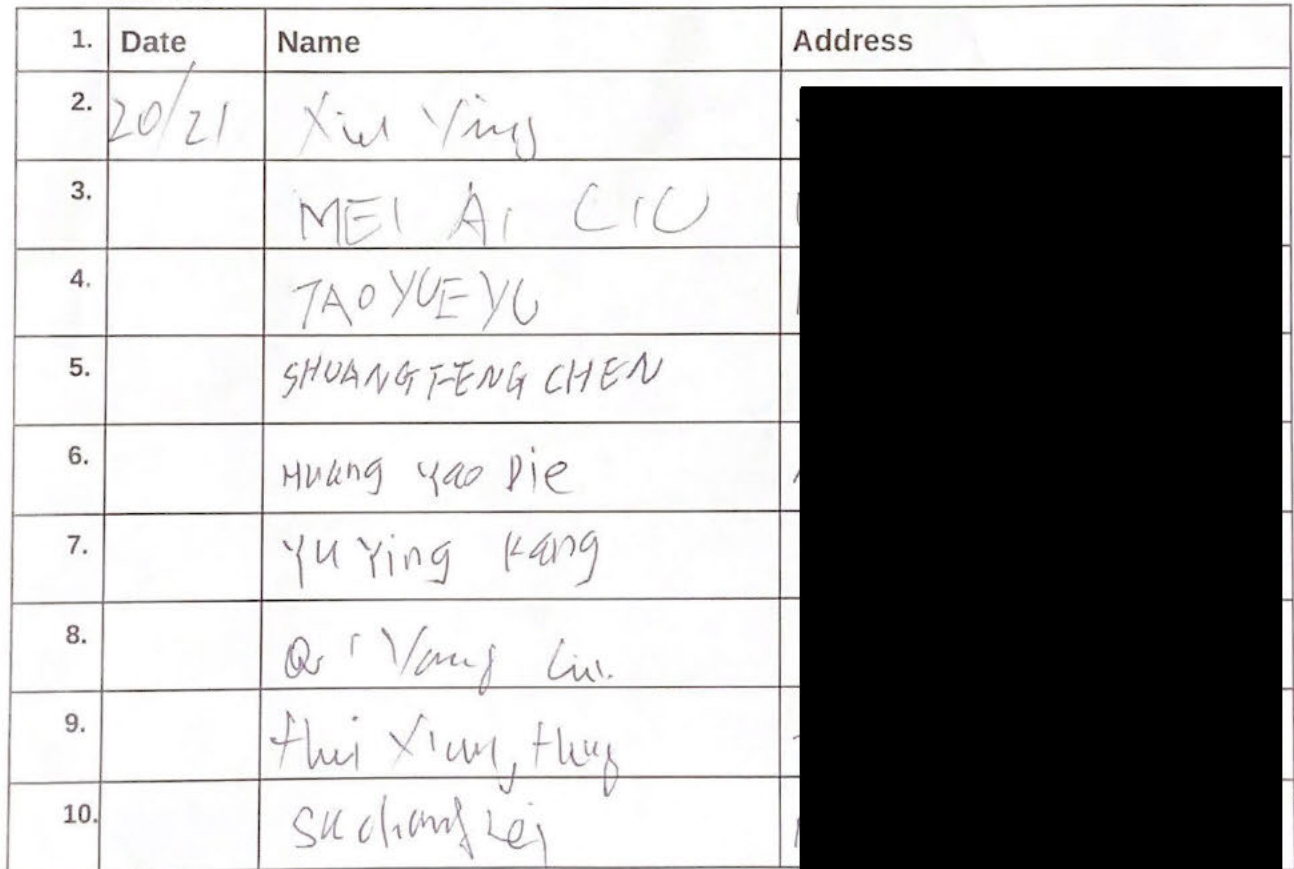 1. Date Name Address
2. 20/21 Xiu Ying
3. MEI Ai LIU
4. TAO YUE YU
5. SHUANG FENG CHEN
6. Huang Yao Die
7. Yu Ying Kang
8. Qi Yang Liu.
9. Thui
10. Su chang Lei